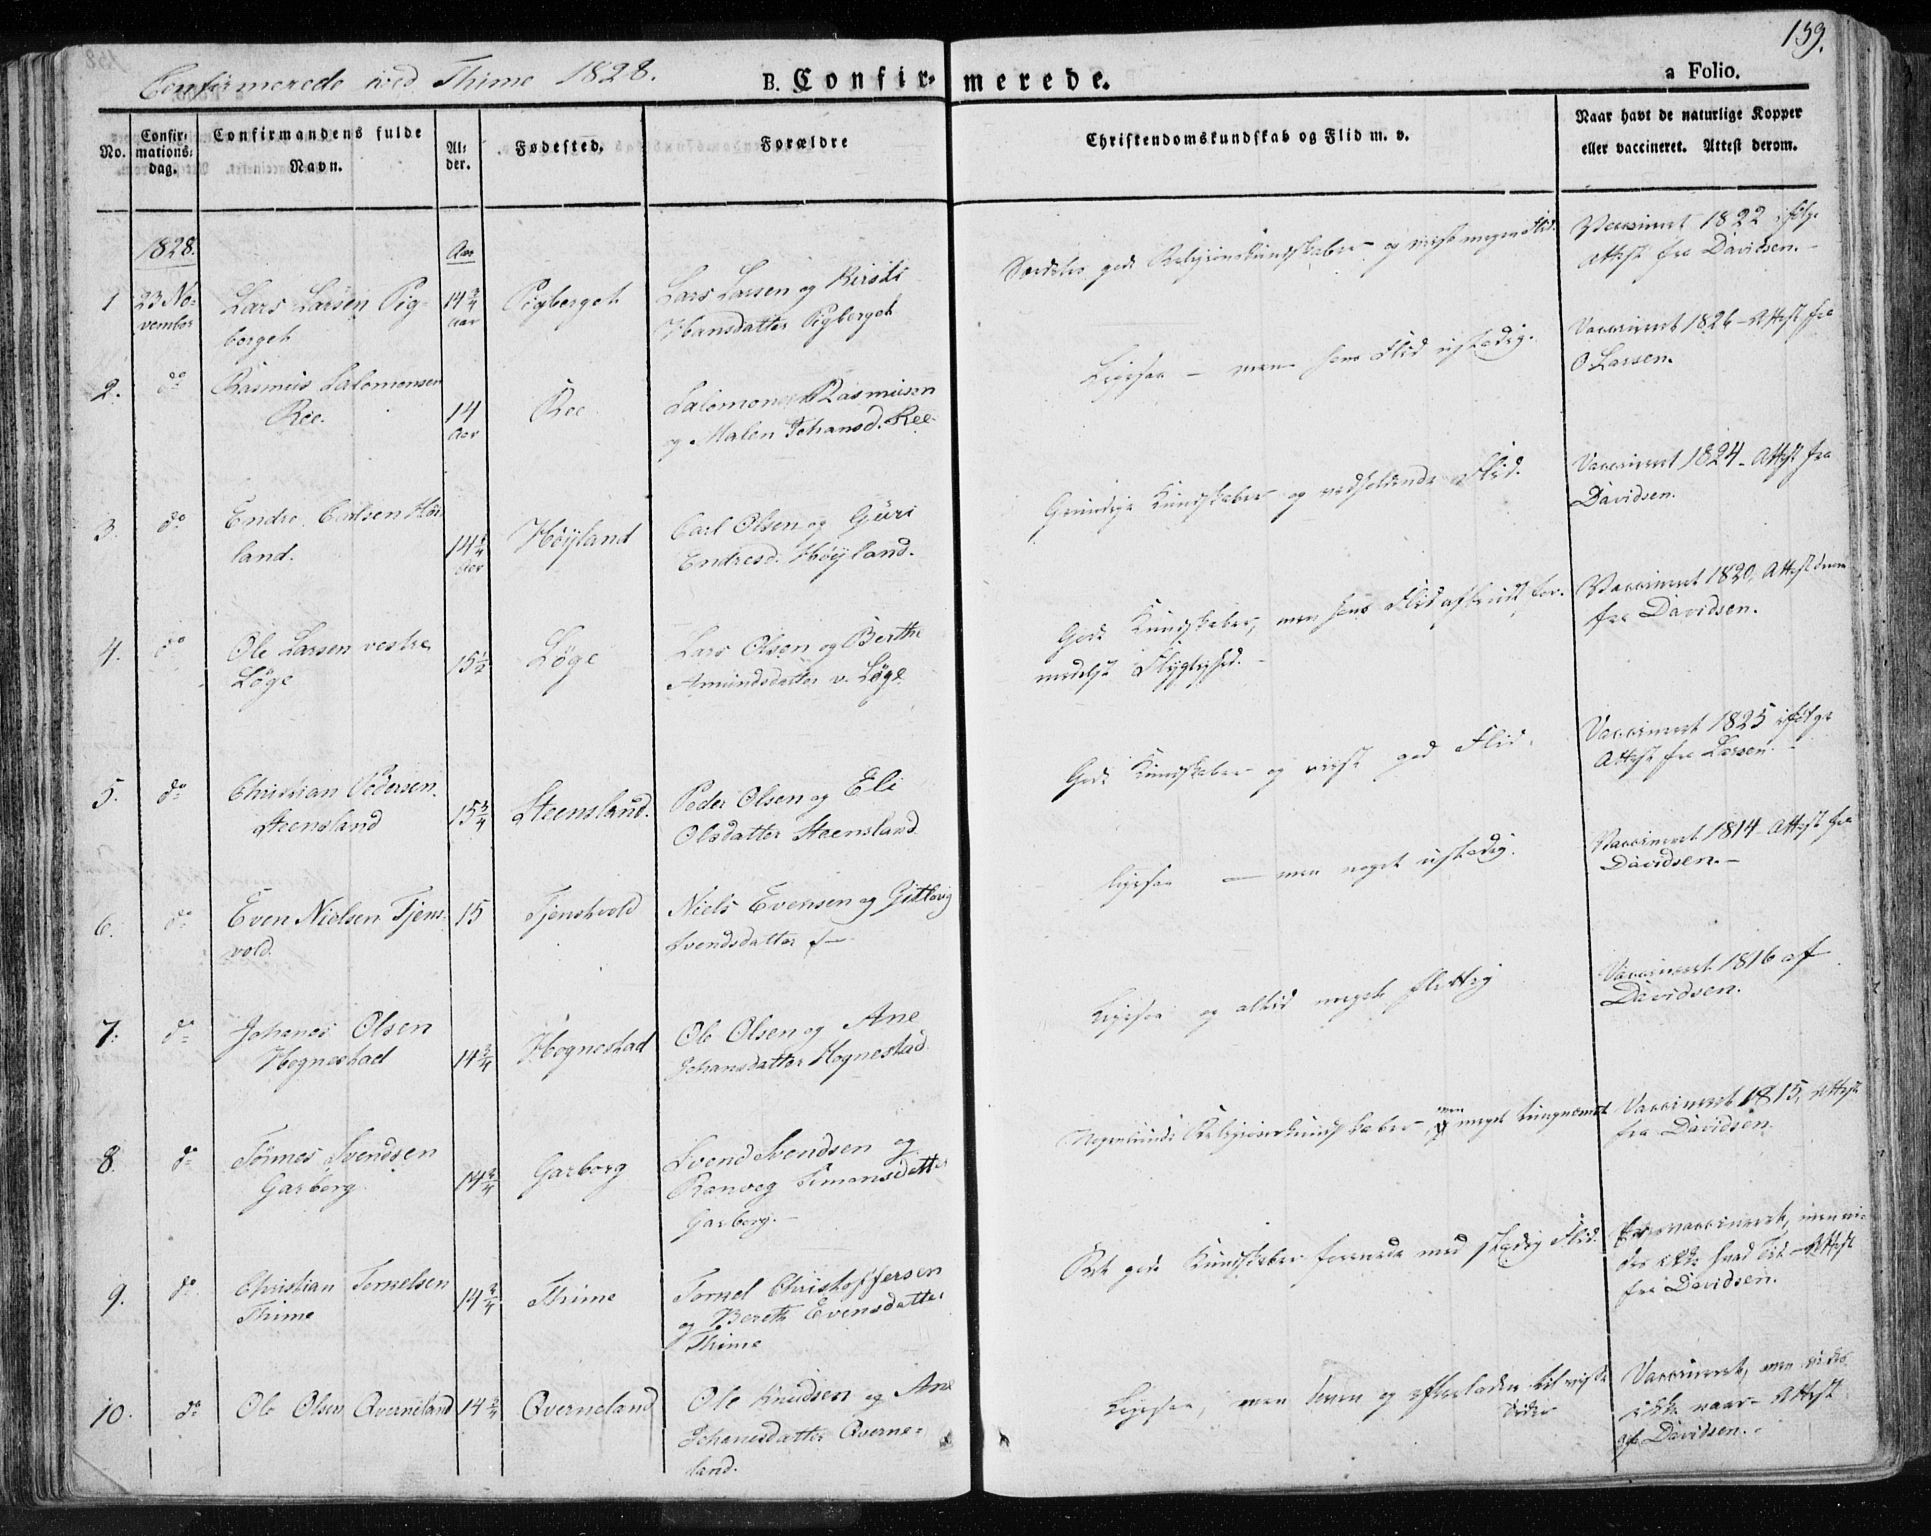 139.
Confirmerede ved Thime 1828.
B. Confirmerede.
a Folio.
No.
Confirmations: dag.
Confirmandens fulde Navn.
Alder.
Fødested.
Forældre
Christendomskundskab og Flid m. v.
Naar havt de naturlige Kopper eller vaccineret. Attest derom.
1828.
Aar
1
23 November
Lars Larsen Pigberget
14 3/4 Aar
Pigberget
Lars Larsen og Kirsti
Hansdatter Pigberget
Særdeles gode Religionskundskaber og viist megen Flid.
Vaccineret 1822 ifølge
Attest fra Davidsen.
2.
do
Rasmus Salomonsen
Ree.
14 Aar
Ree
Salomon Rasmusen
og Malen Johansd. Ree
Ligesaa – men hans Flid ustadig.
Vaccineret 1826 – Attest fra
O Larsen.
3.
do
Endre Carlsen Høiland.
14 Aar
Høyland
Carl Olsen og Guri
Endresd. Høyland.
Grundige Kundskaber og vedholdende Flid.
Vaccineret 1824 – Attest fra
Davidsen.
4.
do
Ole Larsen vestre
Løge
15 1/2
Løge
Lars Olsen og Berthe
Amundsdatter v. Løge
Gode Kundskaber, men hans Flid afbrudt formedelst Skyglighed.
Vaccineret 1820, Attest derom
fra Davidsen.
5.
do
Christian Pedersen
Steensland
15 3/4
Steensland.
Peder Olsen og Eli
Olsdatter Steensland
Gode Kundskaber og viist god Flid.
Vaccineret 1825 ifølge
Attest fra Larsen.
6.
do
Even Nielsen Tjensvold.
15
Tjenstvold
Niels Evensen og Gitlovig
Svendsdatter
Ligesaa – men noget ustadig.
Vaccineret 1814 – Attest fra
Davidsen. –
7.
do
Johanes Olsen
Hognestad
14 3/4
Hognestad
Ole Olsen og Ane
Johansdatter Hognestad
Ligesaa og altid meget flittig
Vaccineret 1816 af
Davidsen.
8.
do
Tönnes Svendsen
Garborg
14 3/4
Garborg
Svend Svendsen og
Ranveg Simonsdatter
Garborg. –
Nogenlunde Religionskundskaber, men meget tungnemet
Vaccineret 1815, Attest
fra Davidsen
9.
do
Christian Tornelsen
Thime
14 3/4
Thime
Tornel Christoffersen
og Bereth Evensdatter
Thime
Ret gode Kundskaber forenede med stadig Flid.
Er vaccineret, men vides ikke hvad Tid – Attest
fra Davidsen.
10.
do
Ole Olsen Qverneland
14 3/4
Qverneland
Ole Knudsen og Ane
Johanesdatter Qverneland.
Ligesaa, men doven og efterladen til visse
Tider
Vaccineret, men vides
ikke naar – Attest
af Davidsen.